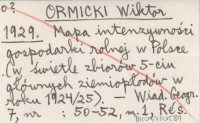 o2
ORMICKI Wiktor
1929. Mapa intensywności
gospodarki rolnej w Polsce
(w świetle zbiorów 5-ciu
głównych ziemiopłodów w
roku 1924/25). — Wiad. Geogr.
7, nr : 50-52, m. 1, Rés.